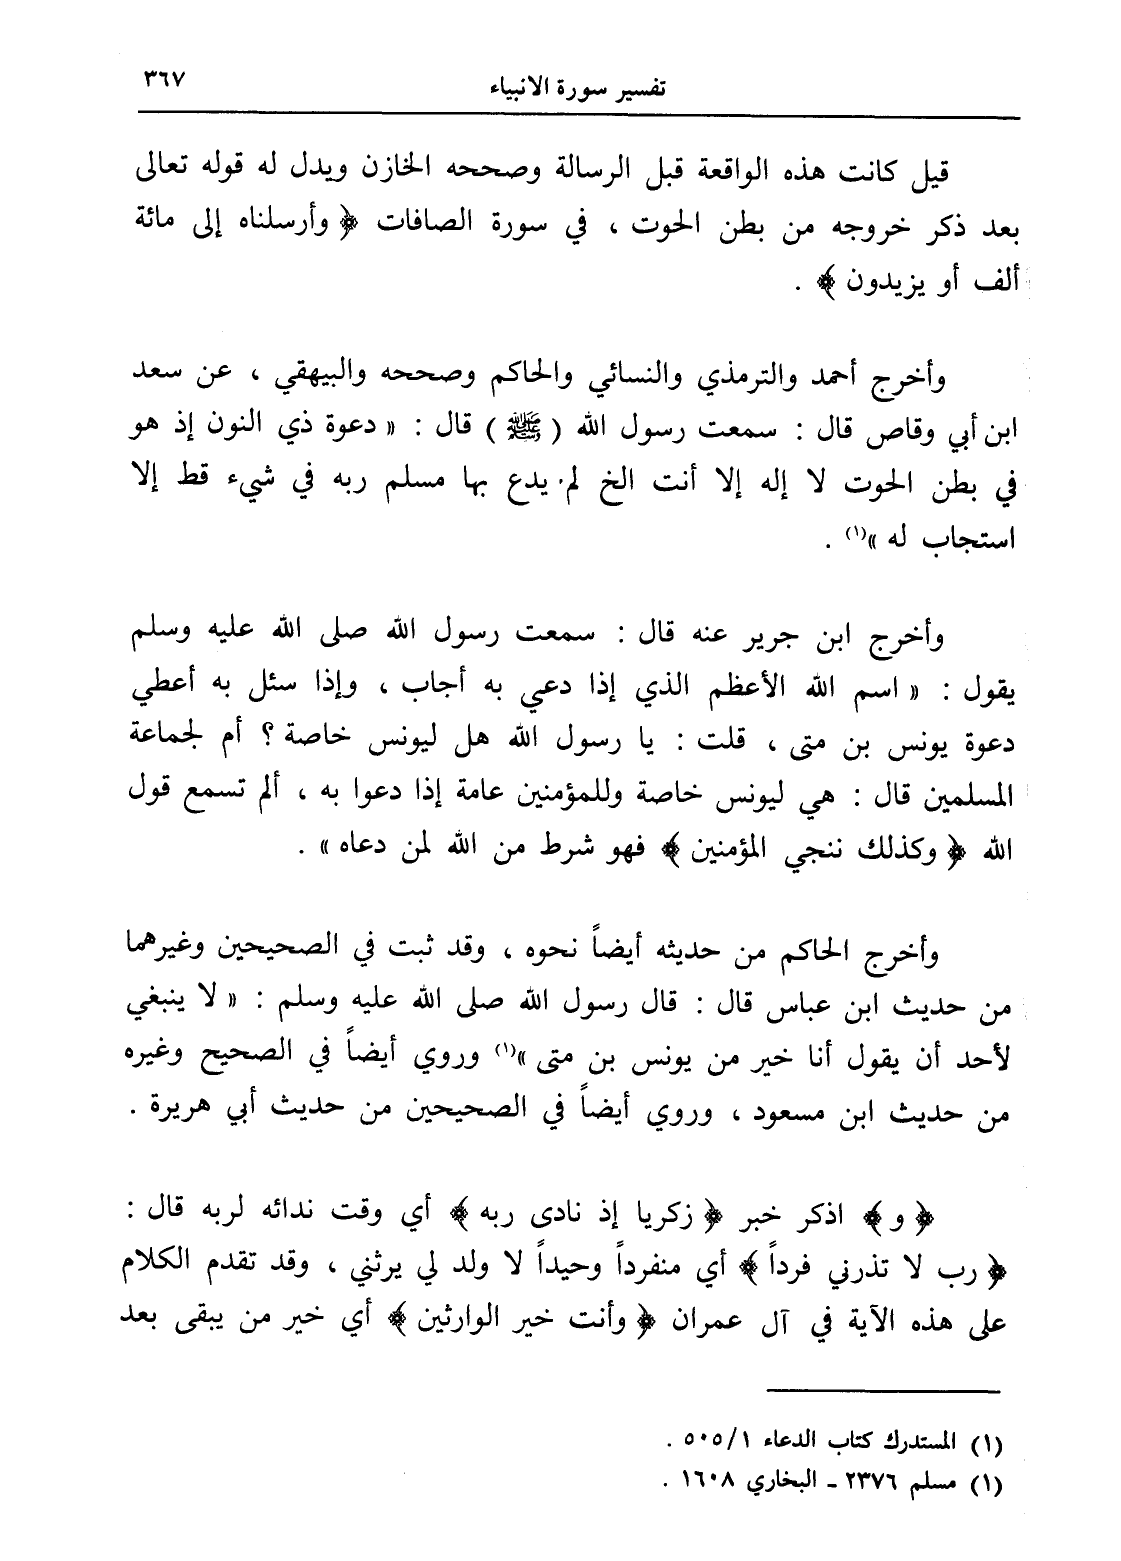 تفسير سورة الانبياء ٣٦٧
قيل كانت هذه الواقعة قبل الرسالة وصححه الخازن ويدل له قوله تعالى
بعد ذكر خروجه من بطن الحوت ، في سورة الصافات ﴿ وأرسلناه إلى مائة
ألف أو يزيدون ﴾ .
وأخرج أحمد والترمذي والنسائي والحاكم وصححه والبيهقي ، عن سعد
ابن أبي وقاص قال : سمعت رسول الله ( ﷺ ) قال : « دعوة ذي النون إذ هو
في بطن الحوت لا إله إلا أنت الخ لم يدع بها مسلم ربه في شيء قط إلا
استجاب له »(١) .
وأخرج ابن جرير عنه قال : سمعت رسول الله صلى الله عليه وسلم
يقول : « اسم الله الأعظم الذي إذا دعي به أجاب ، وإذا سئل به أعطي
دعوة يونس بن متى ، قلت : يا رسول الله هل ليونس خاصة ؟ أم لجماعة
المسلمين قال : هي ليونس خاصة وللمؤمنين عامة إذا دعوا به ، ألم تسمع قول
الله ﴿ وكذلك ننجي المؤمنين ﴾ فهو شرط من الله لمن دعاه » .
وأخرج الحاكم من حديثه أيضاً نحوه ، وقد ثبت في الصحيحين وغيرهما
من حديث ابن عباس قال : قال رسول الله صلى الله عليه وسلم : « لا ينبغي
لأحد أن يقول أنا خير من يونس بن متى »(١) وروي أيضاً في الصحيح وغيره
من حديث ابن مسعود ، وروي أيضاً في الصحيحين من حديث أبي هريرة .
﴿ و ﴾ اذكر خبر ﴿ زكريا إذ نادى ربه ﴾ أي وقت ندائه لربه قال :
﴿ رب لا تذرني فرداً ﴾ أي منفرداً وحيداً لا ولد لي يرثني ، وقد تقدم الكلام
على هذه الآية في آل عمران ﴿ وأنت خير الوارثين ﴾ أي خير من يبقى بعد
(١) المستدرك كتاب الدعاء ٥٠٥/١ .
(١) مسلم ٢٣٧٦ ـ البخاري ١٦٠٨ .